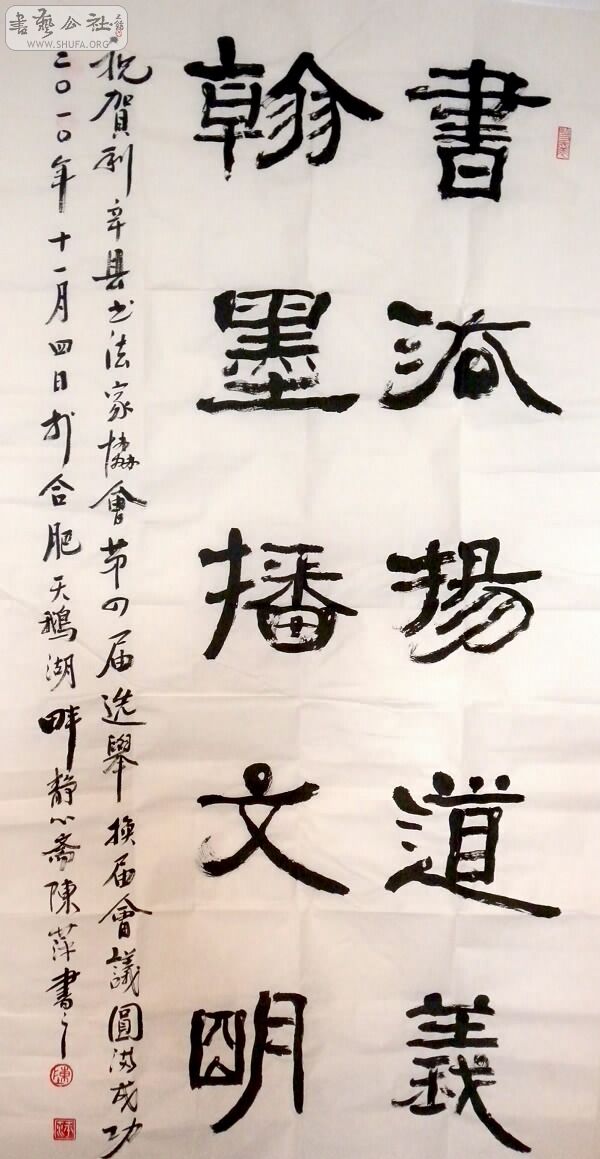 書藝公社
WWW.SHUFA.ORG
書法揚道義
翰墨播文明
祝賀利辛县书法家協會苐四届选舉換届會議圓满成功
二〇一〇年十一月四日於合肥天鵝湖畔静心斋陳萍書之